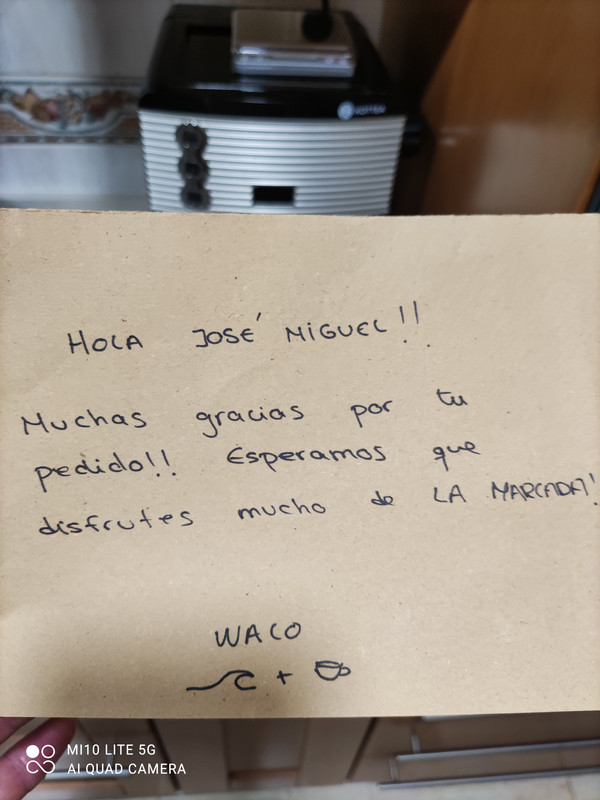 HOLA JOSÉ MIGUEL!!
Muchas gracias por tu
pedido!! Esperamos que
disfrutes mucho de LA MARCADA!
WACO
+
MI10 LITE 5G
AI QUAD CAMERA